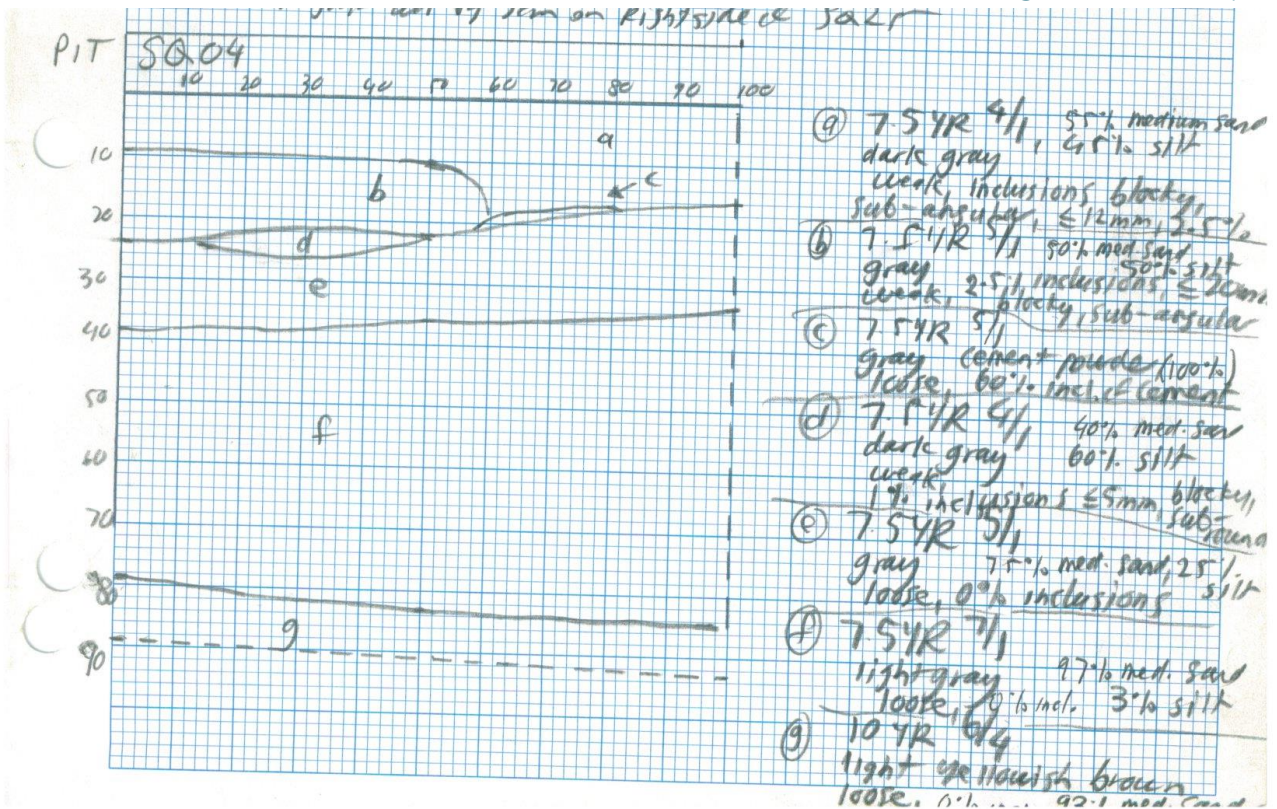 on Right side of
PIT SQ04
10 20 30 40 50 60 70 80 90 100
a
10
b
c
20
d
30
e
40
50
f
60
70
80
g
90
(a) 7.5YR 4/1, 55% medium sand
dark gray 45% silt
weak, inclusions blocky,
sub-angular, ≤12mm, 2.5%
(b) 7.5YR 5/1 50% med. sand
gray 50% silt
weak, 2.5% inclusions, ≤20mm
blocky, sub-angular
(c) 7.5YR 5/1
gray cement powder (100%)
loose, 60% incl. of cement
(d) 7.5YR 4/1 40% med. sand
dark gray 60% silt
weak,
1% inclusions ≤5mm, blocky,
sub-round
(e) 7.5YR 5/1
gray 75% med. sand, 25%
silt
loose, 0% inclusions
(f) 7.5YR 7/1
light gray 97% med. sand
loose, 0% incl. 3% silt
(g) 10YR 6/4
light yellowish brown
loose, med. sand